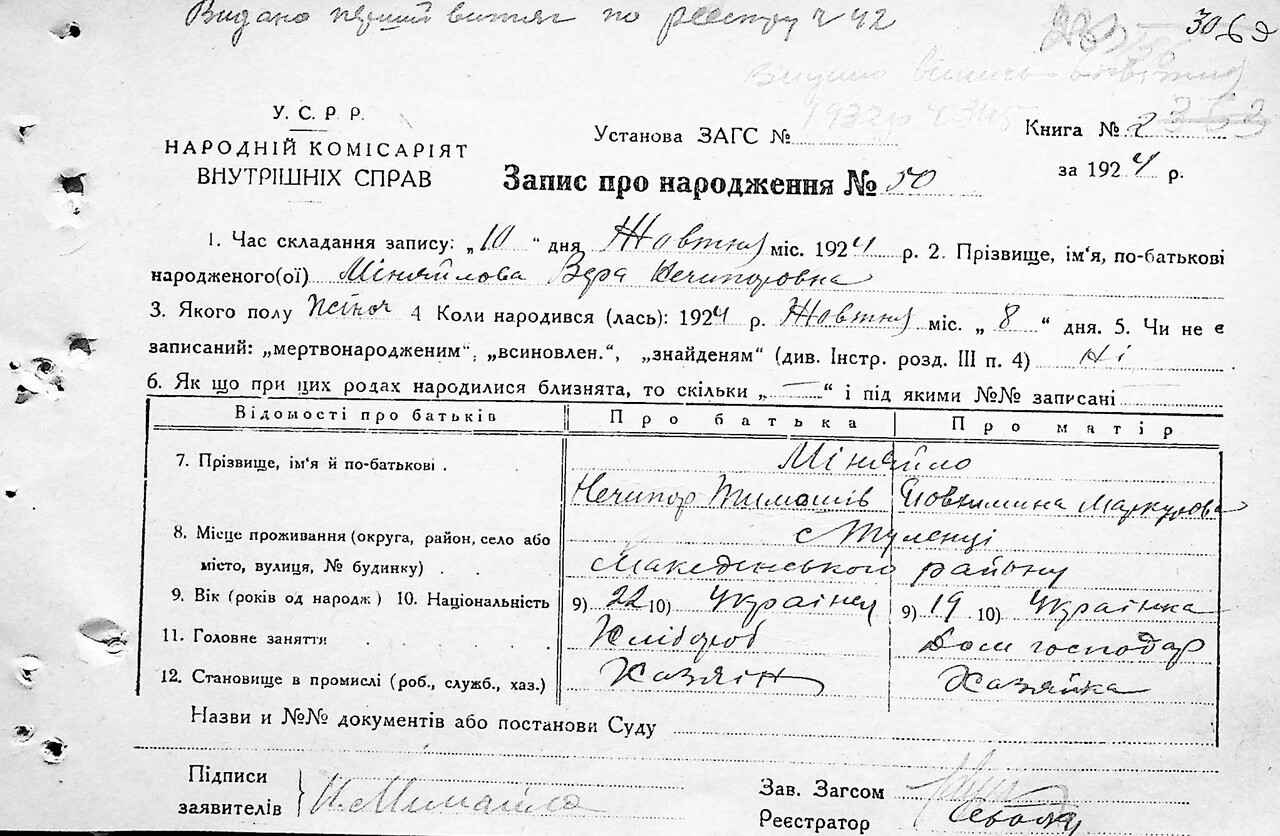 Видано перший витяг по реєстру ч 42
306
У. С. Р. Р.
НАРОДНІЙ КОМІСАРІЯТ
ВНУТРІШНІХ СПРАВ
Установа ЗАГС №
Книга № 2
363
за 1924 р.
Запис про народження № 50
1. Час складання запису: „10“ дня Жовтня міс. 1924 р. 2. Прізвище, ім'я, по-батькові
народженого(ої) Міняйлова Вера Нечипоровна
3. Якого полу жіноч 4 Коли народився (лась): 1924 р. Жовтня міс. „8“ дня. 5. Чи не є
записаний: „мертвонародженим“; „всиновлен.“, „знайденям“ (див. Інстр. розд. III п. 4) Ні.
6. Як що при цих родах народилися близнята, то скільки „—“ і під якими №№ записані —
Відомості про батьків Про батька Про матір
7. Прізвище, ім'я й по-батькові . Міняйло
Нечипор Тимошів Маркурова
8. Місце проживання (округа, район, село або с Туленці
місто, вулиця, № будинку) . . Македонського району
9. Вік (років од народж) 10. Національність 9) 22 10) Українец 9) 19 10) Українка
11. Головне заняття . . . Хлібороб Дом господар
12. Становище в промислі (роб., служб., хаз.) Хазяін Хазяйка
Назви и №№ документів або постанови Суду
Підписи
заявителів Н. Миняйло
Зав. Загсом
Реєстратор